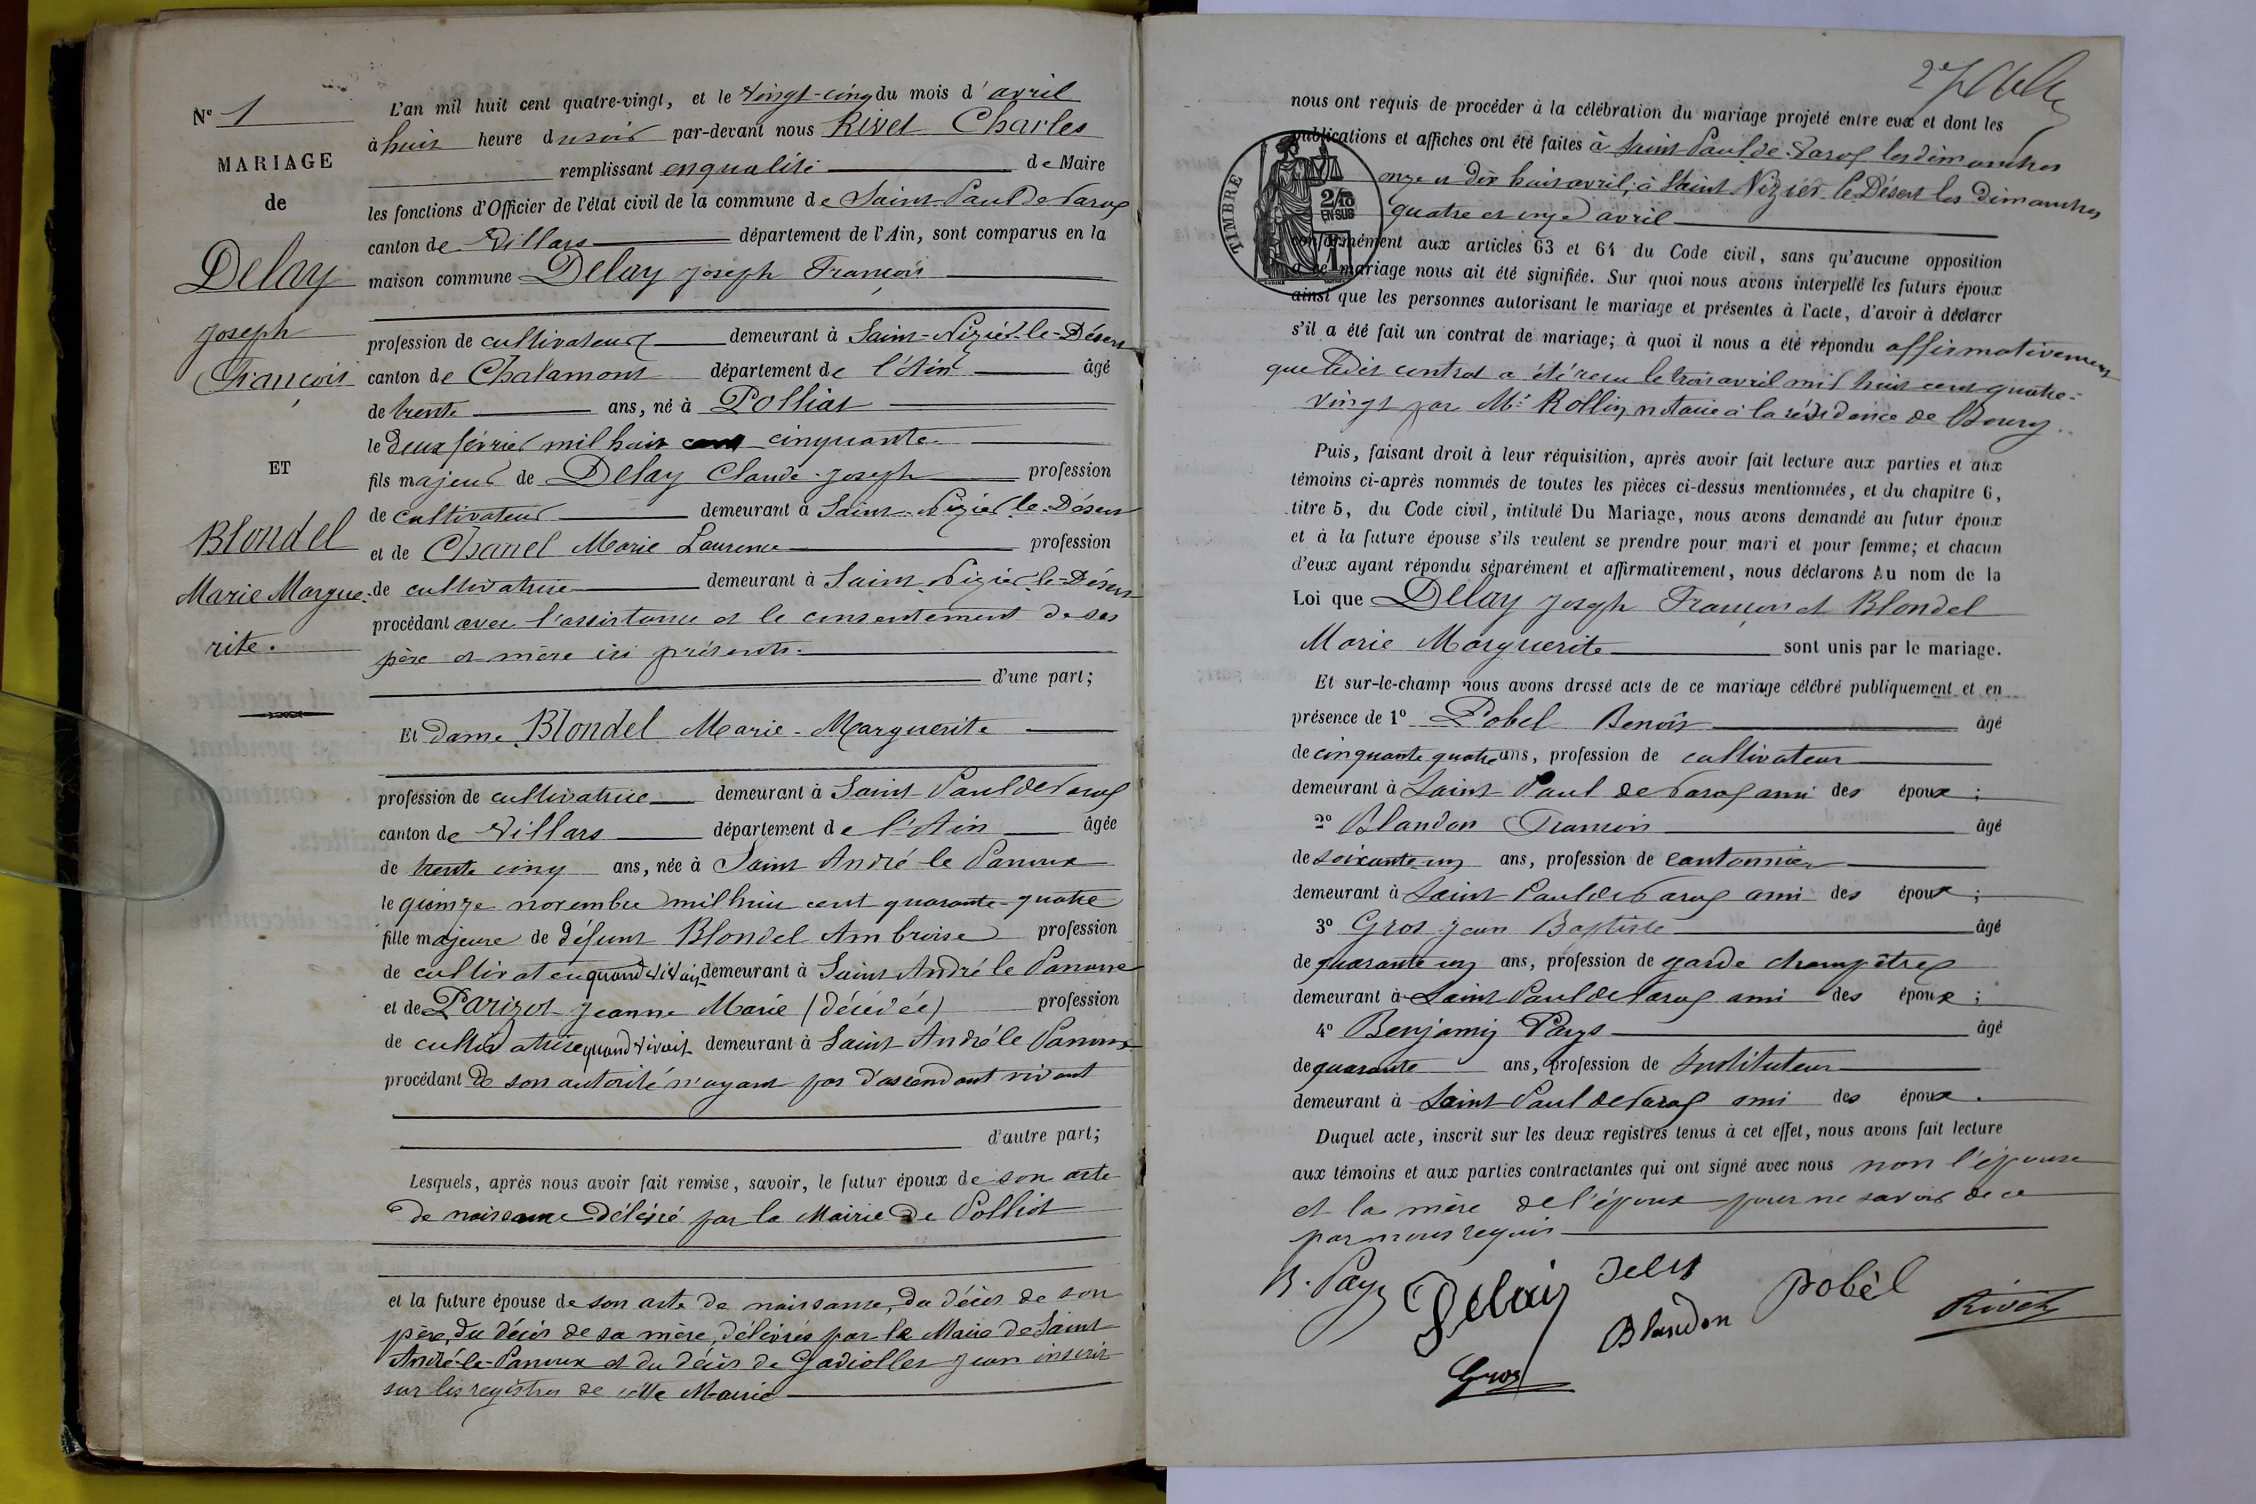 Nº 1
MARIAGE
de
Delay
Joseph
François
ET
Blondel
Marie Margue-
rite.
L'an mil huit cent quatre-vingt, et le vingt-cinq du mois d'avril
à huit heure du soir par-devant nous Rivet Charles
remplissant en qualité de Maire
les fonctions d'Officier de l'état civil de la commune de Saint-Paul de Varax
canton de Villars département de l'Ain, sont comparus en la
maison commune Delay Joseph François
profession de cultivateur demeurant à Saint-Nizier-le-Désert
canton de Chalamont département de l'Ain âgé
de trente ans, né à Polliat
le deux février mil huit cent cinquante
fils majeur de Delay Claude-Joseph profession
de cultivateur demeurant à Saint-Nizier-le-Désert
et de Chanel Marie Laurence profession
de cultivatrice demeurant à Saint-Nizier-le-Désert
procédant avec l'assistance et le consentement de ses
père et mère ici présents.
d'une part;
Et dame Blondel Marie-Marguerite
profession de cultivatrice demeurant à Saint Paul de Varax
canton de Villars département de l'Ain âgée
de trente cinq ans, née à Saint André le Panoux
le quinze novembre mil huit cent quarante-quatre
fille majeure de défunt Blondel Ambroise profession
de cultivateur quand vivait demeurant à Saint André le Panoux
et de Parizot Jeanne Marie (décédée) profession
de cultivatrice quand vivait demeurant à Saint André le Panoux
procédant de son autorité n'ayant pas d'ascendant vivant
d'autre part;
Lesquels, après nous avoir fait remise, savoir, le futur époux de son acte
de naissance délivré par la Mairie de Polliat
et la future épouse de son acte de naissance, du décès de son
père, du décès de sa mère, délivrés par la Mairie de Saint
André-le-Panoux et du décès de Gadiolles Jean inscrit
sur les registres de cette Mairie
nous ont requis de procéder à la célébration du mariage projeté entre eux et dont les
publications et affiches ont été faites à Saint Paul de Varax les dimanches
onze et dix huit avril, à Saint Nizier-le-Désert les dimanches
quatre et onze avril
conformément aux articles 63 et 64 du Code civil, sans qu'aucune opposition
à ce mariage nous ait été signifiée. Sur quoi nous avons interpellé les futurs époux
ainsi que les personnes autorisant le mariage et présentes à l'acte, d'avoir à déclarer
s'il a été fait un contrat de mariage; à quoi il nous a été répondu affirmativement
que ledit contrat a été reçu le trois avril mil huit cent quatre-
vingt par Me Rollin notaire à la résidence de Bourg.
TIMBRE
2/10
EN SUS
Puis, faisant droit à leur réquisition, après avoir fait lecture aux parties et aux
témoins ci-après nommés de toutes les pièces ci-dessus mentionnées, et du chapitre 6,
titre 5, du Code civil, intitulé Du Mariage, nous avons demandé au futur époux
et à la future épouse s'ils veulent se prendre pour mari et pour femme; et chacun
d'eux ayant répondu séparément et affirmativement, nous déclarons Au nom de la
Loi que Delay Joseph François et Blondel
Marie Marguerite sont unis par le mariage.
Et sur-le-champ nous avons dressé acte de ce mariage célébré publiquement et en
présence de 1º Pobel Benoît âgé
de cinquante quatre ans, profession de cultivateur
demeurant à Saint Paul de Varax ami des époux;
2º Blandon François âgé
de soixante un ans, profession de cantonnier
demeurant à Saint Paul de Varax ami des époux;
3º Gros Jean Baptiste âgé
de quarante un ans, profession de garde champêtre
demeurant à Saint Paul de Varax ami des époux;
4º Benjamin Pays âgé
de quarante ans, profession de Instituteur
demeurant à Saint Paul de Varax ami des époux.
Duquel acte, inscrit sur les deux registres tenus à cet effet, nous avons fait lecture
aux témoins et aux parties contractantes qui ont signé avec nous non l'épouse
et la mère de l'époux pour ne savoir de ce
par nous requis
B. Pays Delay Pobel
Blandon Rivet
Gros